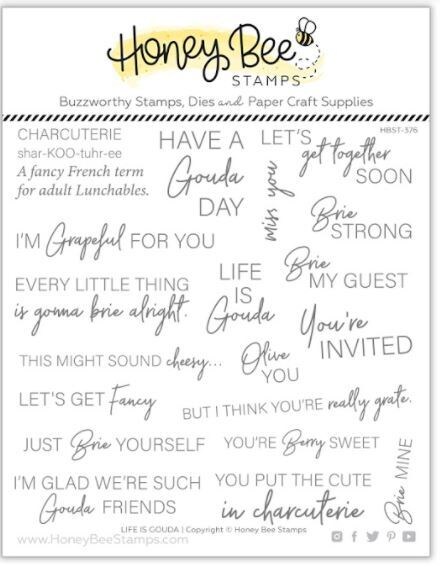 Honey Bee
STAMPS
Buzzworthy Stamps, Dies and Paper Craft Supplies
HBST-376
CHARCUTERIE
shar-KOO-tuhr-ee
A fancy French term
for adult Lunchables.
HAVE A
Gouda
DAY
LET'S
get together
SOON
miss you
Brie
STRONG
I'M Grapeful FOR YOU
Brie
MY GUEST
EVERY LITTLE THING
is gonna brie alright.
LIFE
IS
Gouda
You're
INVITED
THIS MIGHT SOUND cheesy...
Olive
YOU
LET'S GET Fancy
BUT I THINK YOU'RE really grate.
JUST Brie YOURSELF
YOU'RE Berry SWEET
Brie MINE
I'M GLAD WE'RE SUCH
Gouda FRIENDS
YOU PUT THE CUTE
in charcuterie
LIFE IS GOUDA | Copyright © Honey Bee Stamps
www.HoneyBeeStamps.com